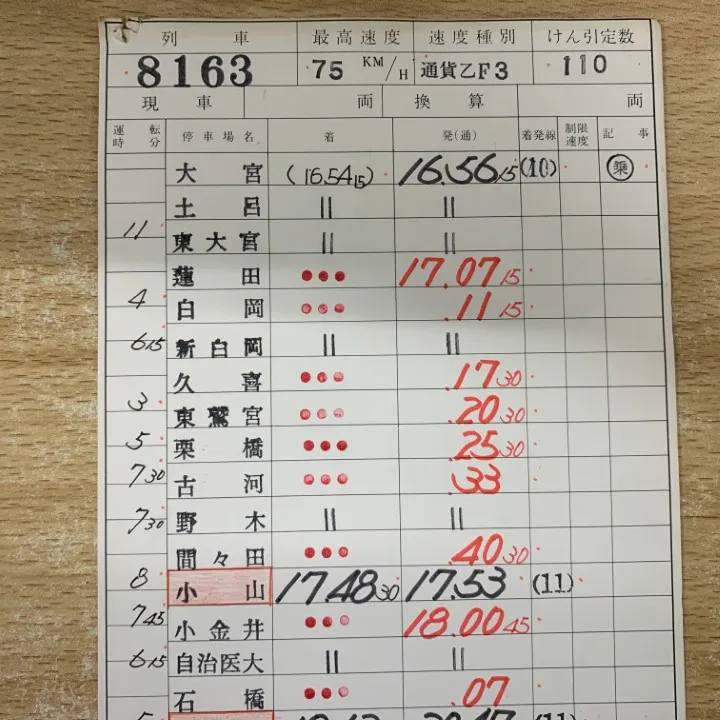 列 車 最高速度 速度種別 けん引定数
8163 75 KM/H 通貨乙F3 110
現 車 両 換 算 両
運転時分 停車場名 着 発(通) 着発線 制限速度 記 事
大 宮 (16.54 15) 16.56 15 (10) 乗
土 呂 || ||
11 東大宮 || ||
蓮 田 ●●● 17.07 15
4 白 岡 ●●● .11 15
6 15 新白岡 || ||
久 喜 ●●● .17 30
3 東鷲宮 ●●● .20 30
5 栗 橋 ●●● .25 30
7 30 古 河 ●●● .33
7 30 野 木 || ||
間々田 ●●● .40 30
8 小 山 17.48 30 17.53 (11)
7 45 小金井 ●●● 18.00 45
6 15 自治医大 || ||
石 橋 ●●● .07